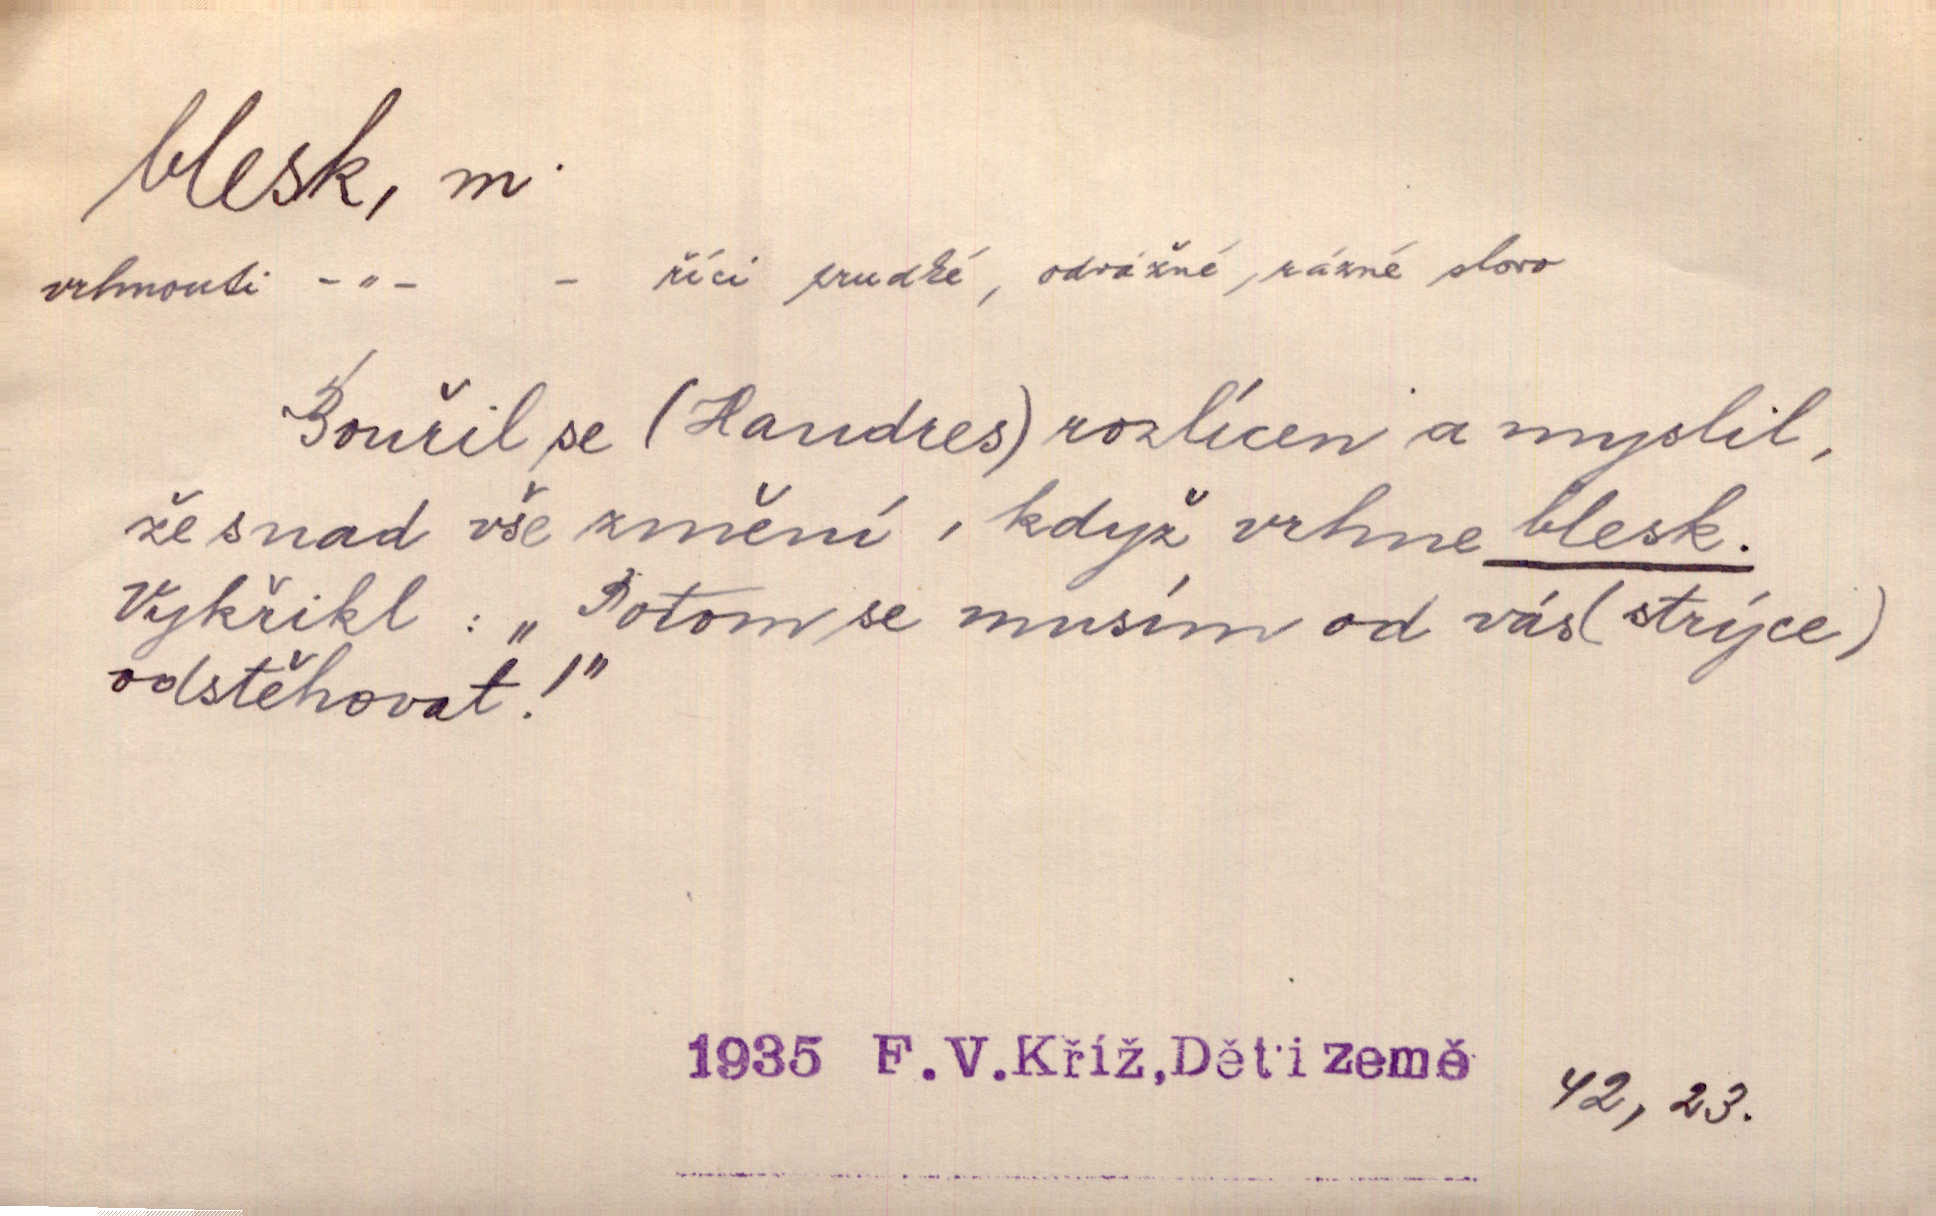 blesk, m.
vrhnouti -"- - říci prudké, odvážné, rázné slovo
Bouřil se (Handres) rozlícen a myslil,
že snad vše změní, když vrhne blesk.
Vykřikl: „Potom se musím od vás (strýce)
odstěhovat!"
1935 F.V.Kříž,Děti země
42, 23.